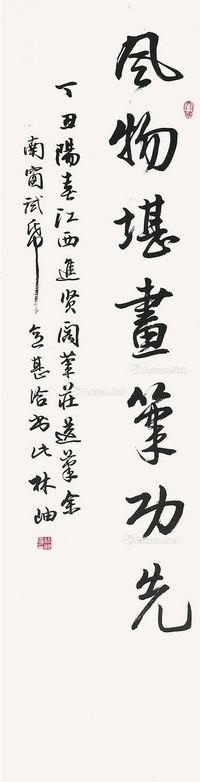 風物堪畫筆功先
丁丑陽春江西進贤阁筆莊送筆余
南窗試筆意甚洽书此林岫